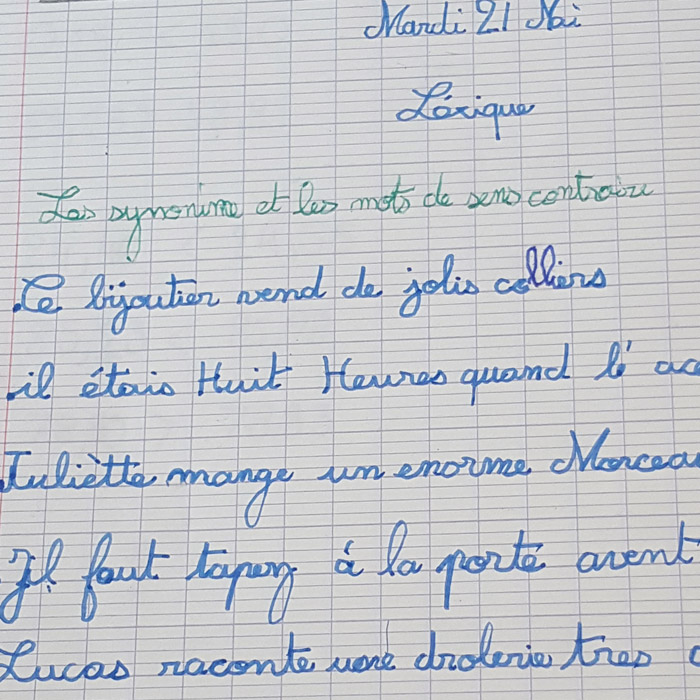 Mardi 21 Mai
Léxique
Les synonime et les mots de sens contraire
.Le bijoutier vend de jolis colliers
.il étais Huit Heures quand l'ac
Juliètte mange un enorme Morceau
Il faut taper à la porte avent
Lucas raconte une drolerie tres